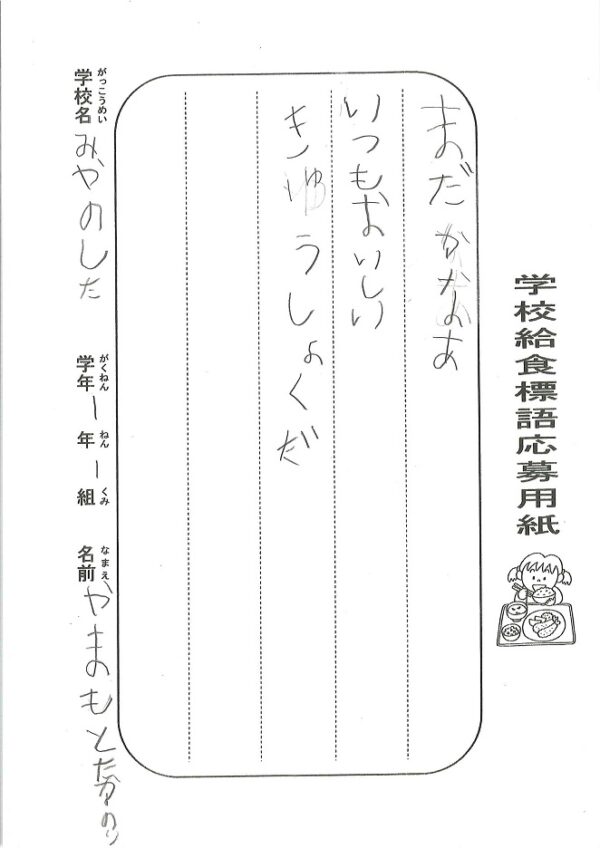 学校給食標語応募用紙
まだかなあ
いつもおいしい
きゅうしょくだ
がっこうめい
学校名 みやのした
がくねん ねん くみ
学年 1 年 1 組
なまえ
名前 やまもとたかのり